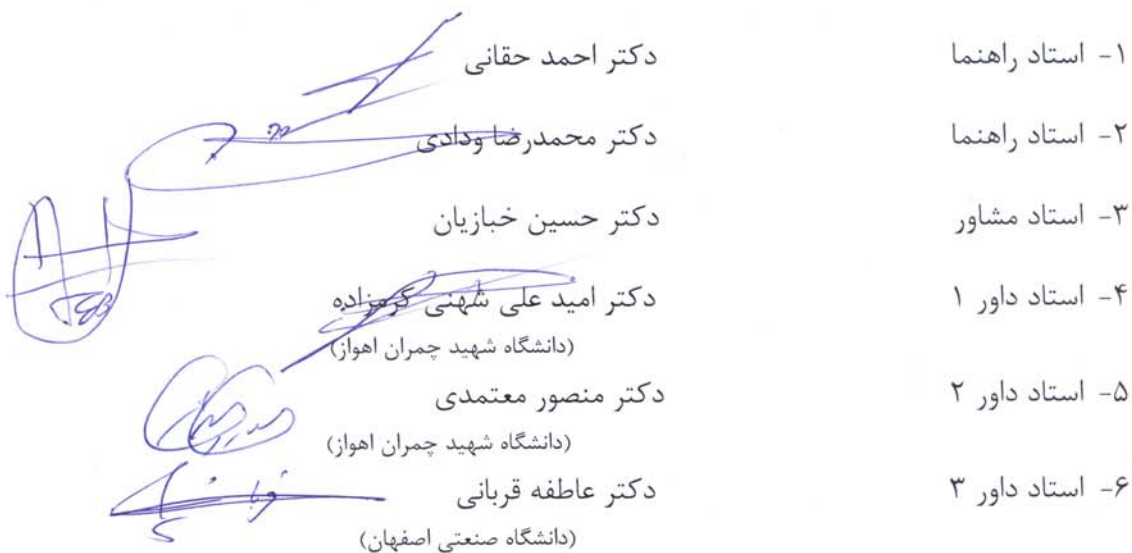 ۱- استاد راهنما دکتر احمد حقانی
۲- استاد راهنما دکتر محمدرضا ودادی
۳- استاد مشاور دکتر حسین خبازیان
۴- استاد داور ۱ دکتر امید علی شهنی کرمزاده
(دانشگاه شهید چمران اهواز)
۵- استاد داور ۲ دکتر منصور معتمدی
(دانشگاه شهید چمران اهواز)
۶- استاد داور ۳ دکتر عاطفه قربانی
(دانشگاه صنعتی اصفهان)